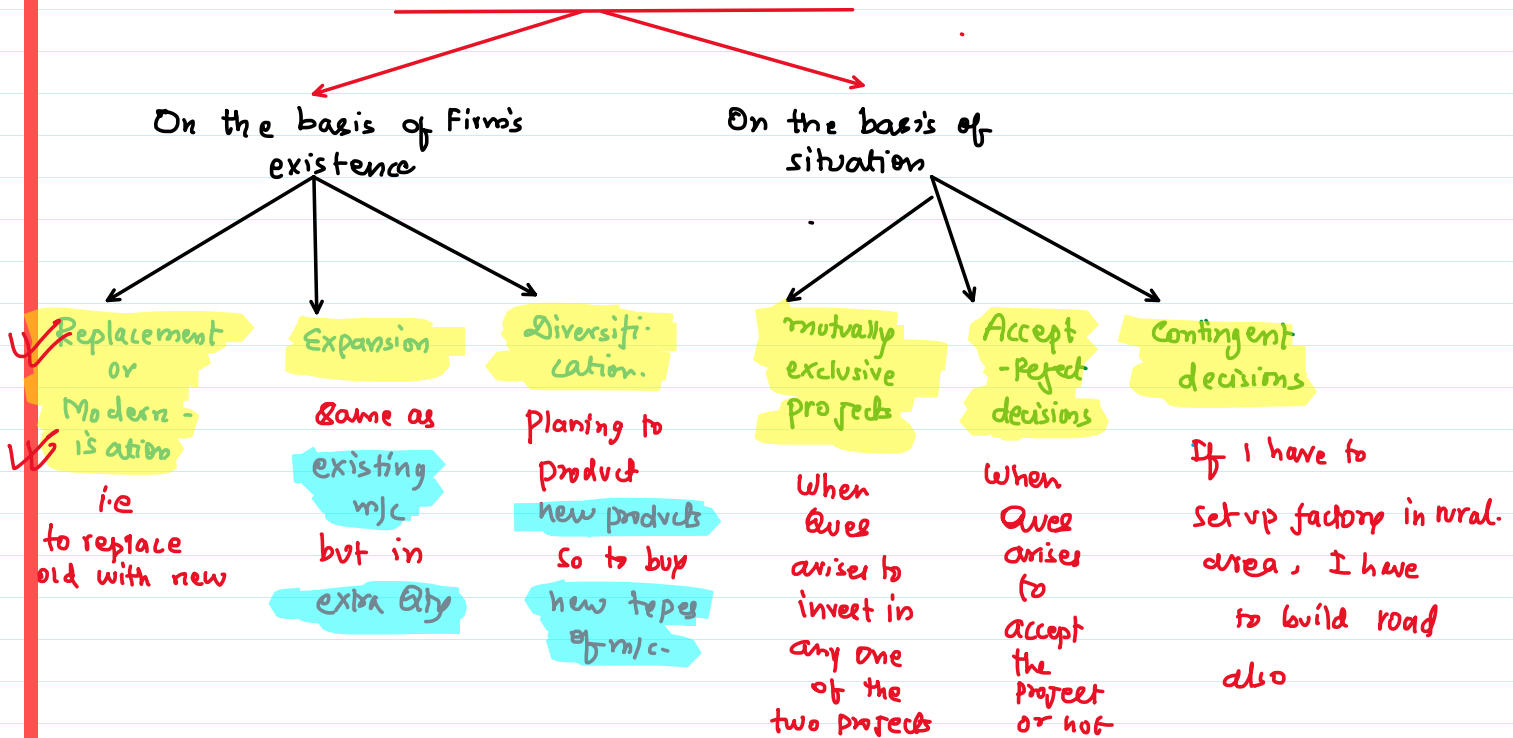 On the basis of Firm's
existence
On the basis of
situation
Replacement
or
Modern-
isation
i.e
to replace
old with new
Expansion
Same as
existing
m/c
but in
extra Qty
Diversifi-
cation.
Planing to
product
new products
so to buy
new types
of m/c.
mutually
exclusive
projects
When
Ques
arises to
invest in
any one
of the
two projects
Accept
-Reject
decisions
When
Ques
arises
to
accept
the
project
or not
Contingent
decisions
If I have to
set up factory in rural.
area, I have
to build road
also